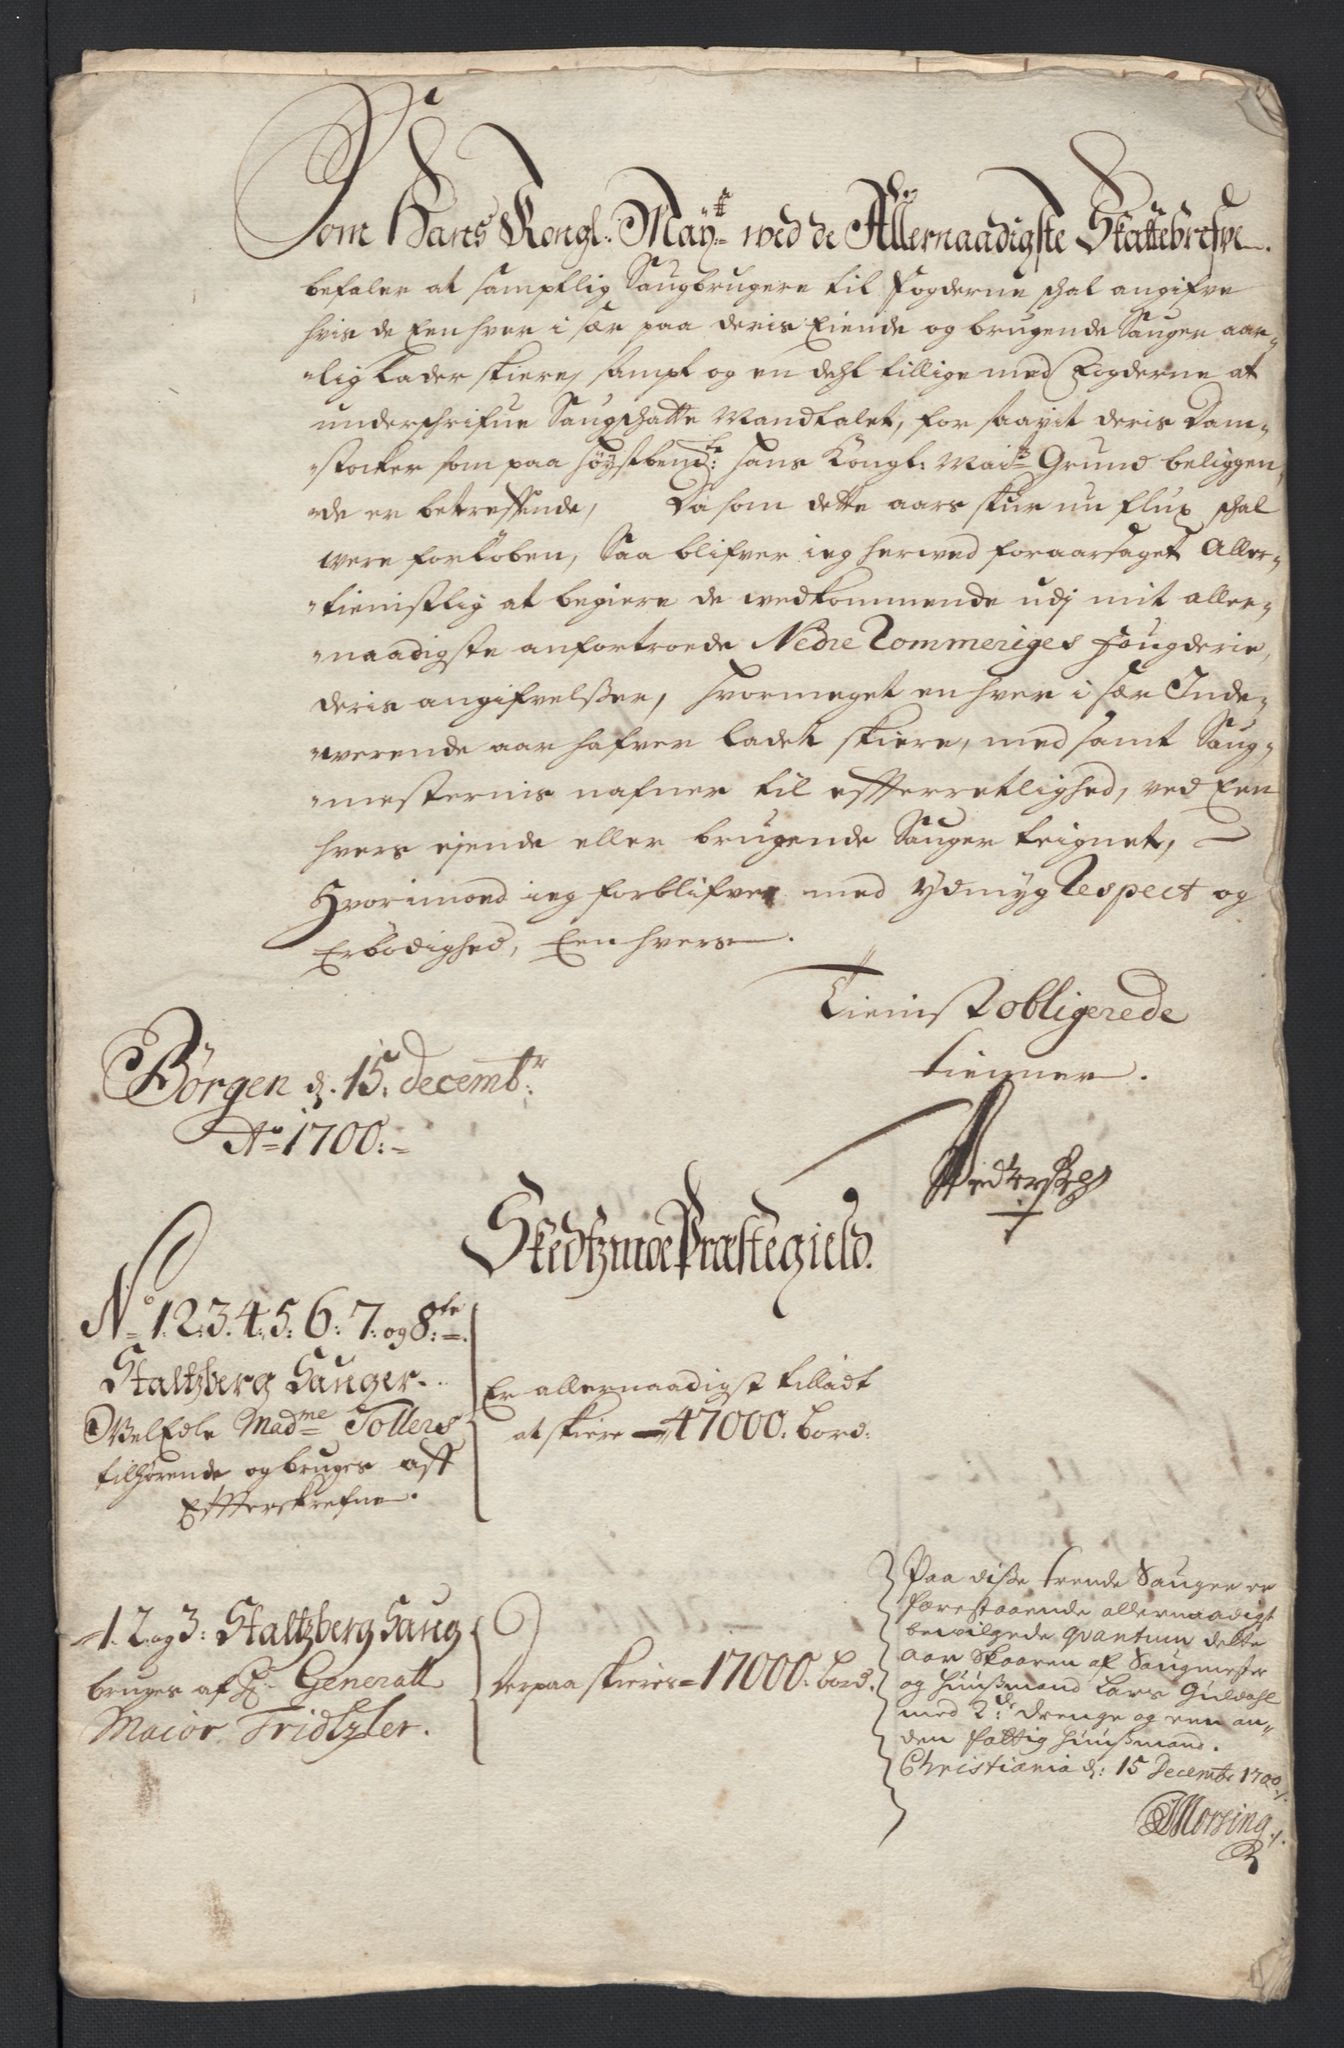 Som Hans Kongl: May:tt wed de Allernaadigste Skattebrefve
befaler at samptlig Saugbrugere til Fogderne schal angifve
hvis de Een hver i sær paa deris Eiende og brugende Sauger aar-
lig Lader skiere, sampt og en dehl tillige med Fogderne at
underschrifue Saugschatte Mandtalet, for saavit deris Dam-
stocker som paa høystbemte: hans Kongl: Mai:ts Grund beliggen-
de er betreffende, Da som dette aars skur nu flux schal
were forløben, Saa blifver ieg herved foraarsaget Aller-
tienistlig at begiere de wedkommende udj mit aller-
naadigste anfortroede Nedre Rommeriges fougderie,
deris angifvelßer, hvormeget en hver i sær Inde-
werende aar hafver ladet skiere, med samt Saug-
mesternis nafner til efterretlighed, ved Een
hvers ejende eller brugende Sauger teignet,
Hvorimod ieg forblifver med ydmyg Respect og
Erbødighed, Een hvers
Tienistobligerede
tienner.
Börgen d. 15. decembr:
Ao 1700:
Skedtzmoe Præstegield.
No 1: 2: 3: 4: 5: 6: 7: og 8:te
Staltzberg Sauger.
WelEdle Madme Tollers
tilhørende og bruges aff
Effterskrefne.
Er allernaadigst tilladt
at skiere 47000. bord:
1. 2. og 3: Staltzberg Saug
bruges af Hr Generall
Maior Tridtzler.
Derpaa skieres 17000. bord.
Paa diße trende Sauger er
forestaaende allernaadigst
bevilgede quantum dette
Aar Skaaren af Saugmester
og Huußmand Lars Guldahl
med 2de drenge og een an-
den fattig Huußmand.
Christiania d: 15 Decembr 1700
Morsing